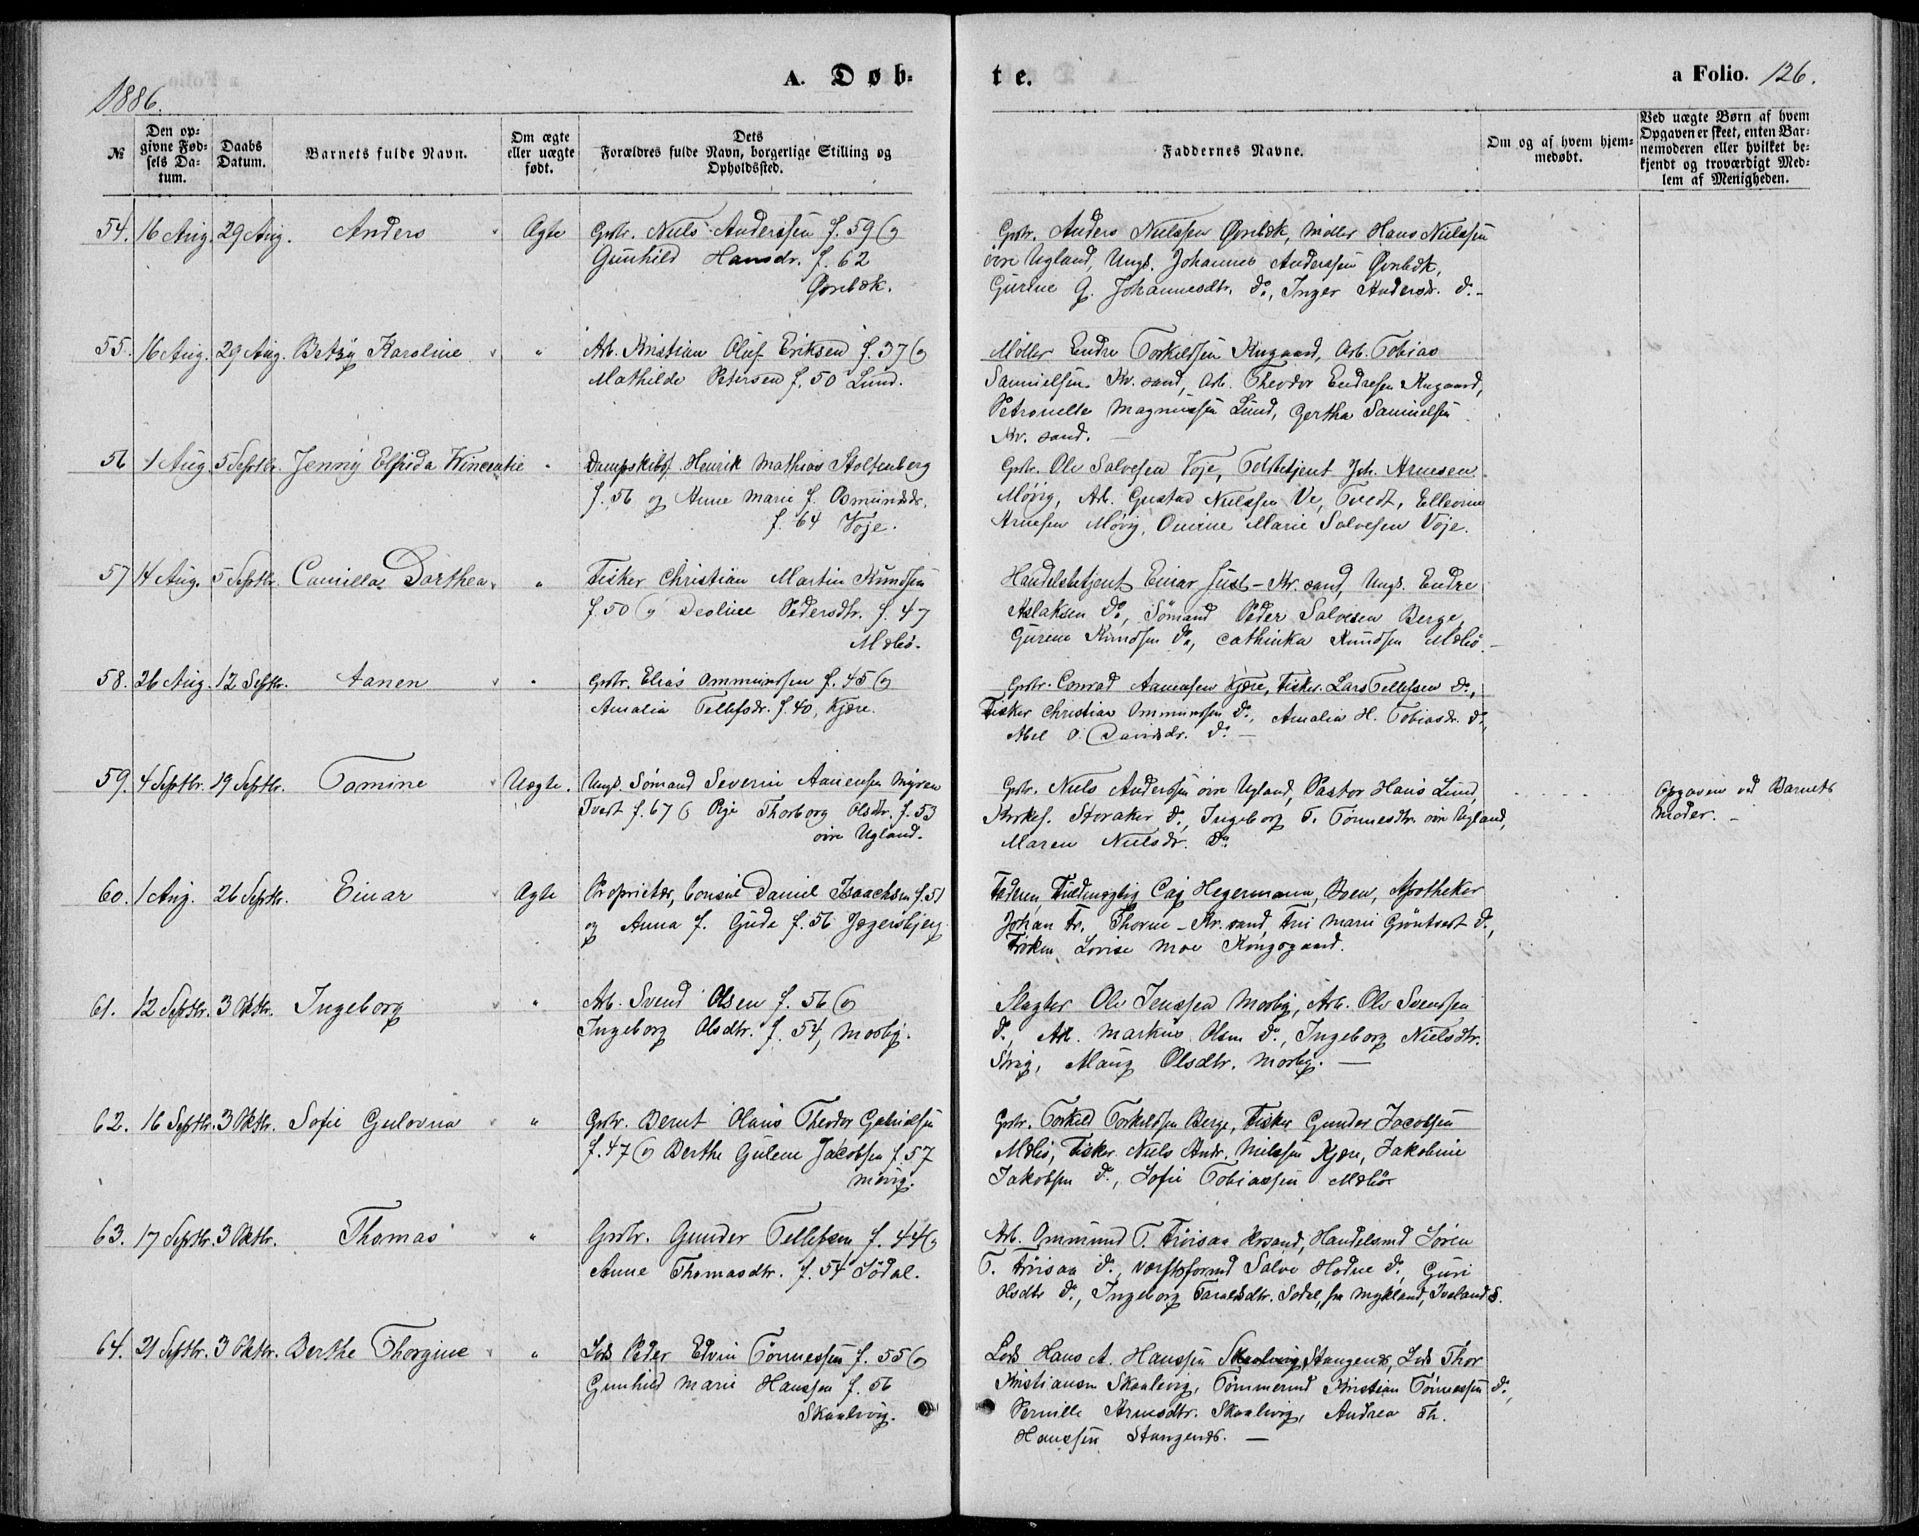 1886.
A. Døb-
te.
a Folio. 126.
№
Den op-
givne Fød-
sels Da-
tum.
Daabs
Datum.
Barnets fulde Navn.
Om ægte
eller uægte
født.
Dets
Forældres fulde Navn, borgerlige Stilling og
Opholdssted.
Faddernes Navne.
Om og af hvem hjem-
medøbt.
Ved uægte Børn af hvem
Opgaven er skeet, enten Bar-
nemoderen eller hvilket be-
kjendt og troværdigt Med-
lem af Menigheden.
54. 16 Aug. 29 Aug. Anders Ægte Grbr. Niels Anderssen f. 59 og
Gunhild Hansdr. f. 62
Øvrebæk.
Grbr. Anders Nielssen Øvrebæk, Møller Hans Nielssen
øvre Ugland, Ungk. Johannes Anderssen Øvrebæk,
Gurine G. Johannesdtr. do., Inger Andersdr. do.-
55. 16 Aug. 29 Aug. Betzy Karoline " Arb. Kristian Oluf Eriksen f. 37 og
Mathilde Petersen f. 50 Lund.
Møller Endre Torkildssen Kugaard, Arb. Tobias
Samuelsen Kr.sand, Arb. Theodor Endresen Kugaard,
Petronelle Magnussen Lund, Gertha Samuelsen
Kr.sand. —
56 1 Aug. 5 Septbr. Jenny Elfrida Vincentie " Dampskibsf. Henrik Mathias Stoltenberg
f. 56 og Anne Marie f. Osmundsdr.
f. 64 Voje.
Grbr. Ole Salvesen Voje, Toldbetjent Joh. Arnesen
Møvig, Arb. Gustad Nielssen Ve, Tvedt, Ellevine
Arnesen Møvig, Omine Marie Salvesen Voje.
57 14 Aug. 5 Septbr. Camilla Dorthea " Fisker Christian Martin Knudsen
f. 50 og Deoline Pedersdtr. f. 47
Mæbø.
Handelsbetjent Einar Juul - Kr.sand, Ungk. Endre
Aslaksen do., Sømand Peder Salvesen Berge,
Gurine Knudsen do., Cathinka Knudsen Mæbø.
58. 26 Aug. 12 Septbr. Aanen " Grbr. Elias Ommundsen f. 45 og
Amalia Tellefsdr. f. 40, Kjære.
Grbr. Conrad Aanensen Kjære, Fisker Lars Tellefsen do.,
Fisker Christian Ommundsen do., Amalia H. Tobiasdr. do.,
Abel O. Davidsdr. do. —
59. 4 Septbr. 19 Septbr. Tomine Uægte. Ungk. Sømand Severin Aanensen Myren
Tvedt f. 67 og Pige Thorborg Olsdtr. f. 53
øvre Ugland.
Grbr. Niels Anderssen øvre Ugland, Pastor Hans Lund,
Kirkes. Storaker do., Ingeborg T. Tønnesdtr. øvre Ugland,
Maren Nielsdr. do.
Opgaven ved Barnets
Moder. —
60. 1 Aug. 26 Septbr. Einar Ægte Proprietær, Consul Daniel Isaachsen f. 51
og Anna f. Gude f. 56 Jegersbjerg
Faderen, Fuldmægtig Caj Hegermann, Oven, Apotheker
Johan Fr. Thorne - Kr.sand, Fru Marie Grøntvedt do.,
Frøken Lovise Moe Kongsgaard.
61. 12 Septbr. 3 Oktbr. Ingeborg " Arb. Svend Olsen f. 56 og
Ingeborg Olsdtr. f. 54, Mosby.
Slagter Ole Jenssen Mosby, Arb. Ole Svendsen
do., Arb. Markus Olsen do., Ingeborg Nielsdtr.
Strig, Maug Olsdtr. Mosby. —
62. 16 Septbr. 3 Oktbr. Sofie Gulovna " Grbr. Bernt Hans Theodor Gabrielsen
f. 47 og Berthe Gulene Jacobsen f. 57
Møvig.
Grbr. Torkild Torkildsen Berge, Fisker Gunder Jacobsen
Mæbø, Fisker Niels Andr. Nielssen Kjære, Jakobine
Jakobsen do., Sofie Tobiassen Mæbø
63. 17 Septbr. 3 Oktbr. Thomas " Grbr. Gunder Tellefsen f. 44 og
Anne Thomasdtr. f. 54 Sødal.
Arb. Ommund T. Frøisaa Krsand, Handelsmd Søren
T. Frøisaa do., Værftsformd Salve Hodne do., Guri
Olsdtr do., Ingeborg Taraldsdtr. Sødal, fra Mykland, Ivelands.
64. 21 Septbr. 3 Oktbr. Berthe Thorgine " Lods Peder Edvin Tønnessen f. 55 og
Gunhild Marie Hanssen f. 56
Skaalevig.
Lods Hans A. Hanssen Skaalevig, Stangenes, Lods Thor
Kristiansen Skaalevig, Tømmermd Kristian Tønnessen do.,
Pernille Arnesdtr. Skaalevig, Andrea Th.
Hanssen Stangenes. —